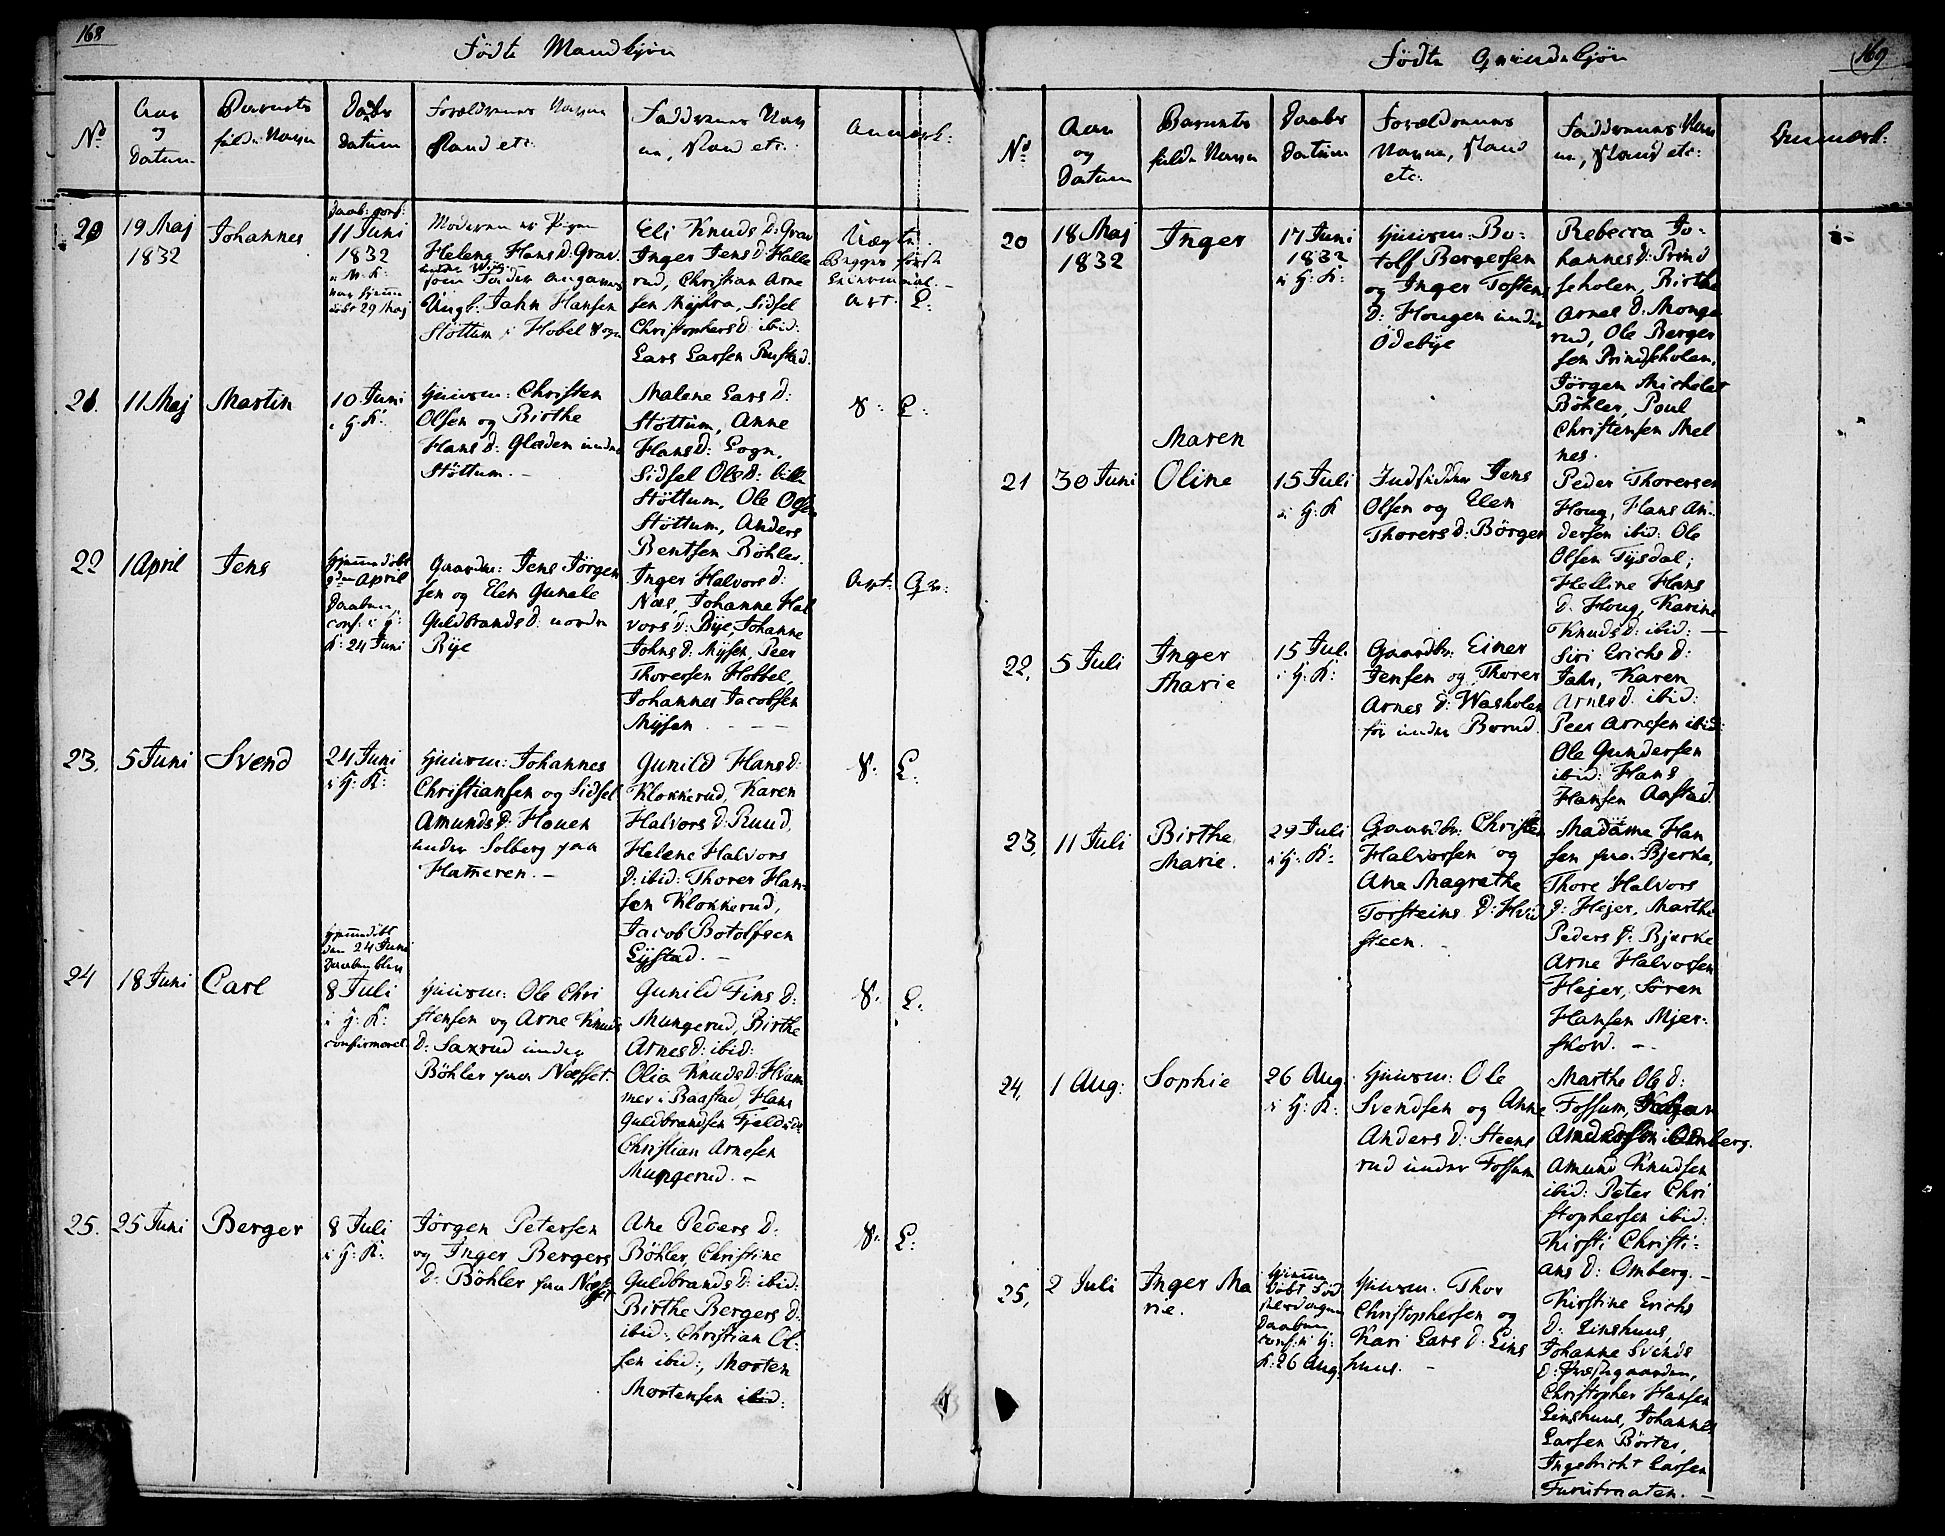 168
Födte Mandkjøn
No
Aar
og
Datum
Barnets
fulde Navn
Daabs
Datum
Forældrenes Navne
Stand etc:
Faddernes Nav
ne, Stand etc.
Anmærk:
20
19 Maj
1832
Johannes
Daab: conf:
11 Juni
1832
i M: K:
var hjemme
døbt 29 Maj
Moderen er Pigen
Helene Hans D: Grav.
som Fader angaves
Ungk. Jahn Hansen
Støttum i Hobel Sogn
Eli Knuds D: Grav
Inger Jens D: Halle
rud, Christian Arne
sen Myhra, Sidsel
Christophers D: ibid:
Lars Larsen Rustad.
Uægte.
Begges første
Leiermaal.
Art. L:
21.
11 Maj
Martin
10 Juni
i H: K:
Huusm: Christen
Olsen og Birthe
Hans D: Glæden under
Støttum. –
Malene Lars D:
Støttum, Anne
Hans D: Sogn,
Sidsel Ols D: lille
Støttum, Ole Olsen
Støttum, Anders
Bentsen Bøhler.
S: L:
22
1 April
Jens
Hjemmedøbt
9de April
Daaben
conf: i H:
K: 24 Juni
Gaardm: Jens Jörgen
sen og Elen Gunele
Guldbrands D: nordre
Rÿe
Inger Halvors D:
Næs, Johanne Hal
vors D: Rÿe, Johanne
Johns D: Mÿsen, Peer
Thoresen Hobbel,
Johannes Jacobsen
Mÿsen
Art: Gr:
23.
5 Juni
Svend
24 Juni
i H: K:
Huusm: Johannes
Christiansen og Sidsel
Amunds D: Houen
under Solberg paa
Hameren. –
Gunild Hans D:
Klokkerud, Karen
Halvors D: Ruud,
Helene Halvors
D: ibid: Thorer Han
sen Klokkerud,
Jacob Botolfsen
Lÿstad. –
S: L:
24
18 Juni
Carl
Hjemmedøbt
den 24 Juni
Daaben blev
8 Juli
i H: K:
confirmeret.
Huusm: Ole Chri
stensen og Arne Knuds
D: Saxrud under
Bøhler paa Næsset.
Gunild Fins D:
Mungerud, Birthe
Arnes D: ibid:
Olia Knuds D: Hvam
mer i Baastad, Hans
Guldbrandsen Fjeld
Christian Arnesen
Mungerud. –
S: L:
25.
25 Juni
Berger
8 Juli
i H: K:
Jørgen Petersen
og Inger Bergers
D: Bøhler paa Næsset
Ane Peders D:
Bøhler, Christine
Guldbrands D: ibid:
Birthe Bergers D:
ibid:, Christian Ol-
sen ibid:, Morten
Mortensen ibid:
S: L:
169
Födte Qvindekjön
No
Aar
og
Datum
Barnets
fulde Navn
Daabs
Datum
Forældrenes
Navne, Stand
etc:
Faddernes Nav
ne, Stand etc:
Anmærk:
20
18 Maj
1832
Inger
17 Juni
1832
i H: K:
Huusm: Bo-
tolf Bergersen
og Inger Tostens
D: Hougen under
Ödebÿe
Rebecca Jo-
hannes D: Prind
seholen, Birthe
Arnes D: Monge
rud, Ole Berger
sen Prindseholen,
Jörgen Nicholai
Bøhler, Poul
Christensen Mel
nes.
21
30 Juni
Maren
Oline
15 Juli
i H: K
Indsidder Jens
Olsen og Elen
Thorers D: Börger
Peder Thoresen
Houg, Hans An-
dersen ibid: Ole
Olsen Tÿsdal;
Helline Hans
D: Houg, Karine
Knuds D: ibid: –
22,
5 Juli
Inger
Marie
15 Jul.
i H: K:
Gaardbr: Einer
Jensen og Thorer
Arnes D: Washolen
under Borud.
Siri Erichs D:
Jahr, Karen
Arnes D. ibid:
Peer Arnesen ibid:
Ole Gundersen
ibid: Hans
Hansen Aastad.
23,
11 Juli
Birthe
Marie.
29 Juli
i H: K:
Gaardbr: Christen
Halvorsen og
Ane Magrethe
Torsteins D: Hvid
steen. –
Madame Han
sen paa Bjerke,
Thore Halvors
D: Hejer, Marthe
Peders D: Bjerke
Arne Halvorsen
Hejer, Sören
Hansen Mjer-
skow. –
24,
1 Aug:
Sophie
26 Aug
i H: K:
Huusm: Ole
Svendsen og Anne
Anders D: Steens
rud under Fossum
Marthe Ole D:
Fossum,
Amund Knudsen
ibid: Peter Chri
stophersen ibid:
Kirsti Christi-
ans D: Omberg. –
25,
2 Juli
Inger Ma
rie.
Hjemme
døbt Fød
selsdagen
Daaben
conf: i H:
K: 26 Aug.
Huusm: Thor
Christophersen og
Kari Lars D: Lins
huus. –
Kirstine Erichs
D: Linshuus,
Johanne Svends
D: Præstegaarden,
Christopher Hansen
Linshuus, Johannes
Larsen Börter,
Ingebricht Larsen
Furubraaten. –